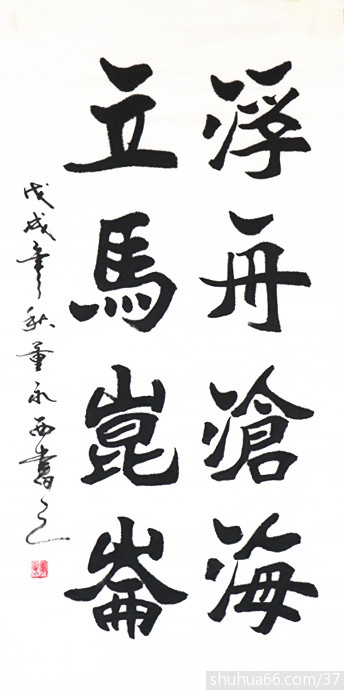 浮舟滄海
立馬崑崙
戊戌年秋董永西書之
shuhua66.com/37